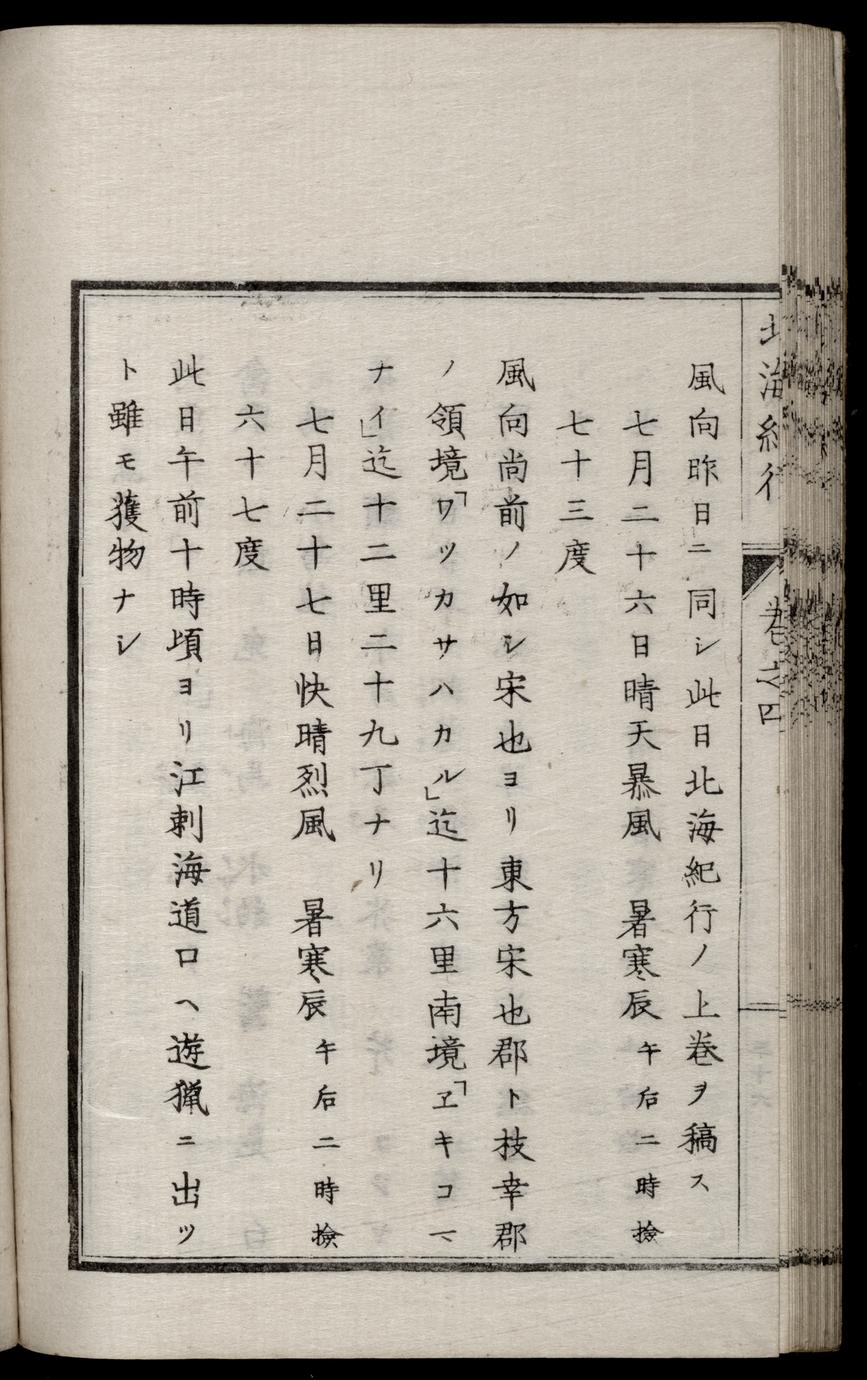 北海紀行
卷之四
風向昨日ニ同シ此日北海紀行ノ上卷ヲ稿ス
七月二十六日晴天暴風　暑寒辰午后二時撿
七十三度
風向尚前ノ如シ宋也ヨリ東方宋也郡ト枝幸郡
ノ領境「ワツカサハカル」迄十六里南境「ヱキコマ
ナイ」迄十二里二十九丁ナリ
七月二十七日快晴烈風　暑寒辰午后二時撿
六十七度
此日午前十時頃ヨリ江刺海道口ヘ遊猟ニ出ツ
ト雖モ獲物ナシ